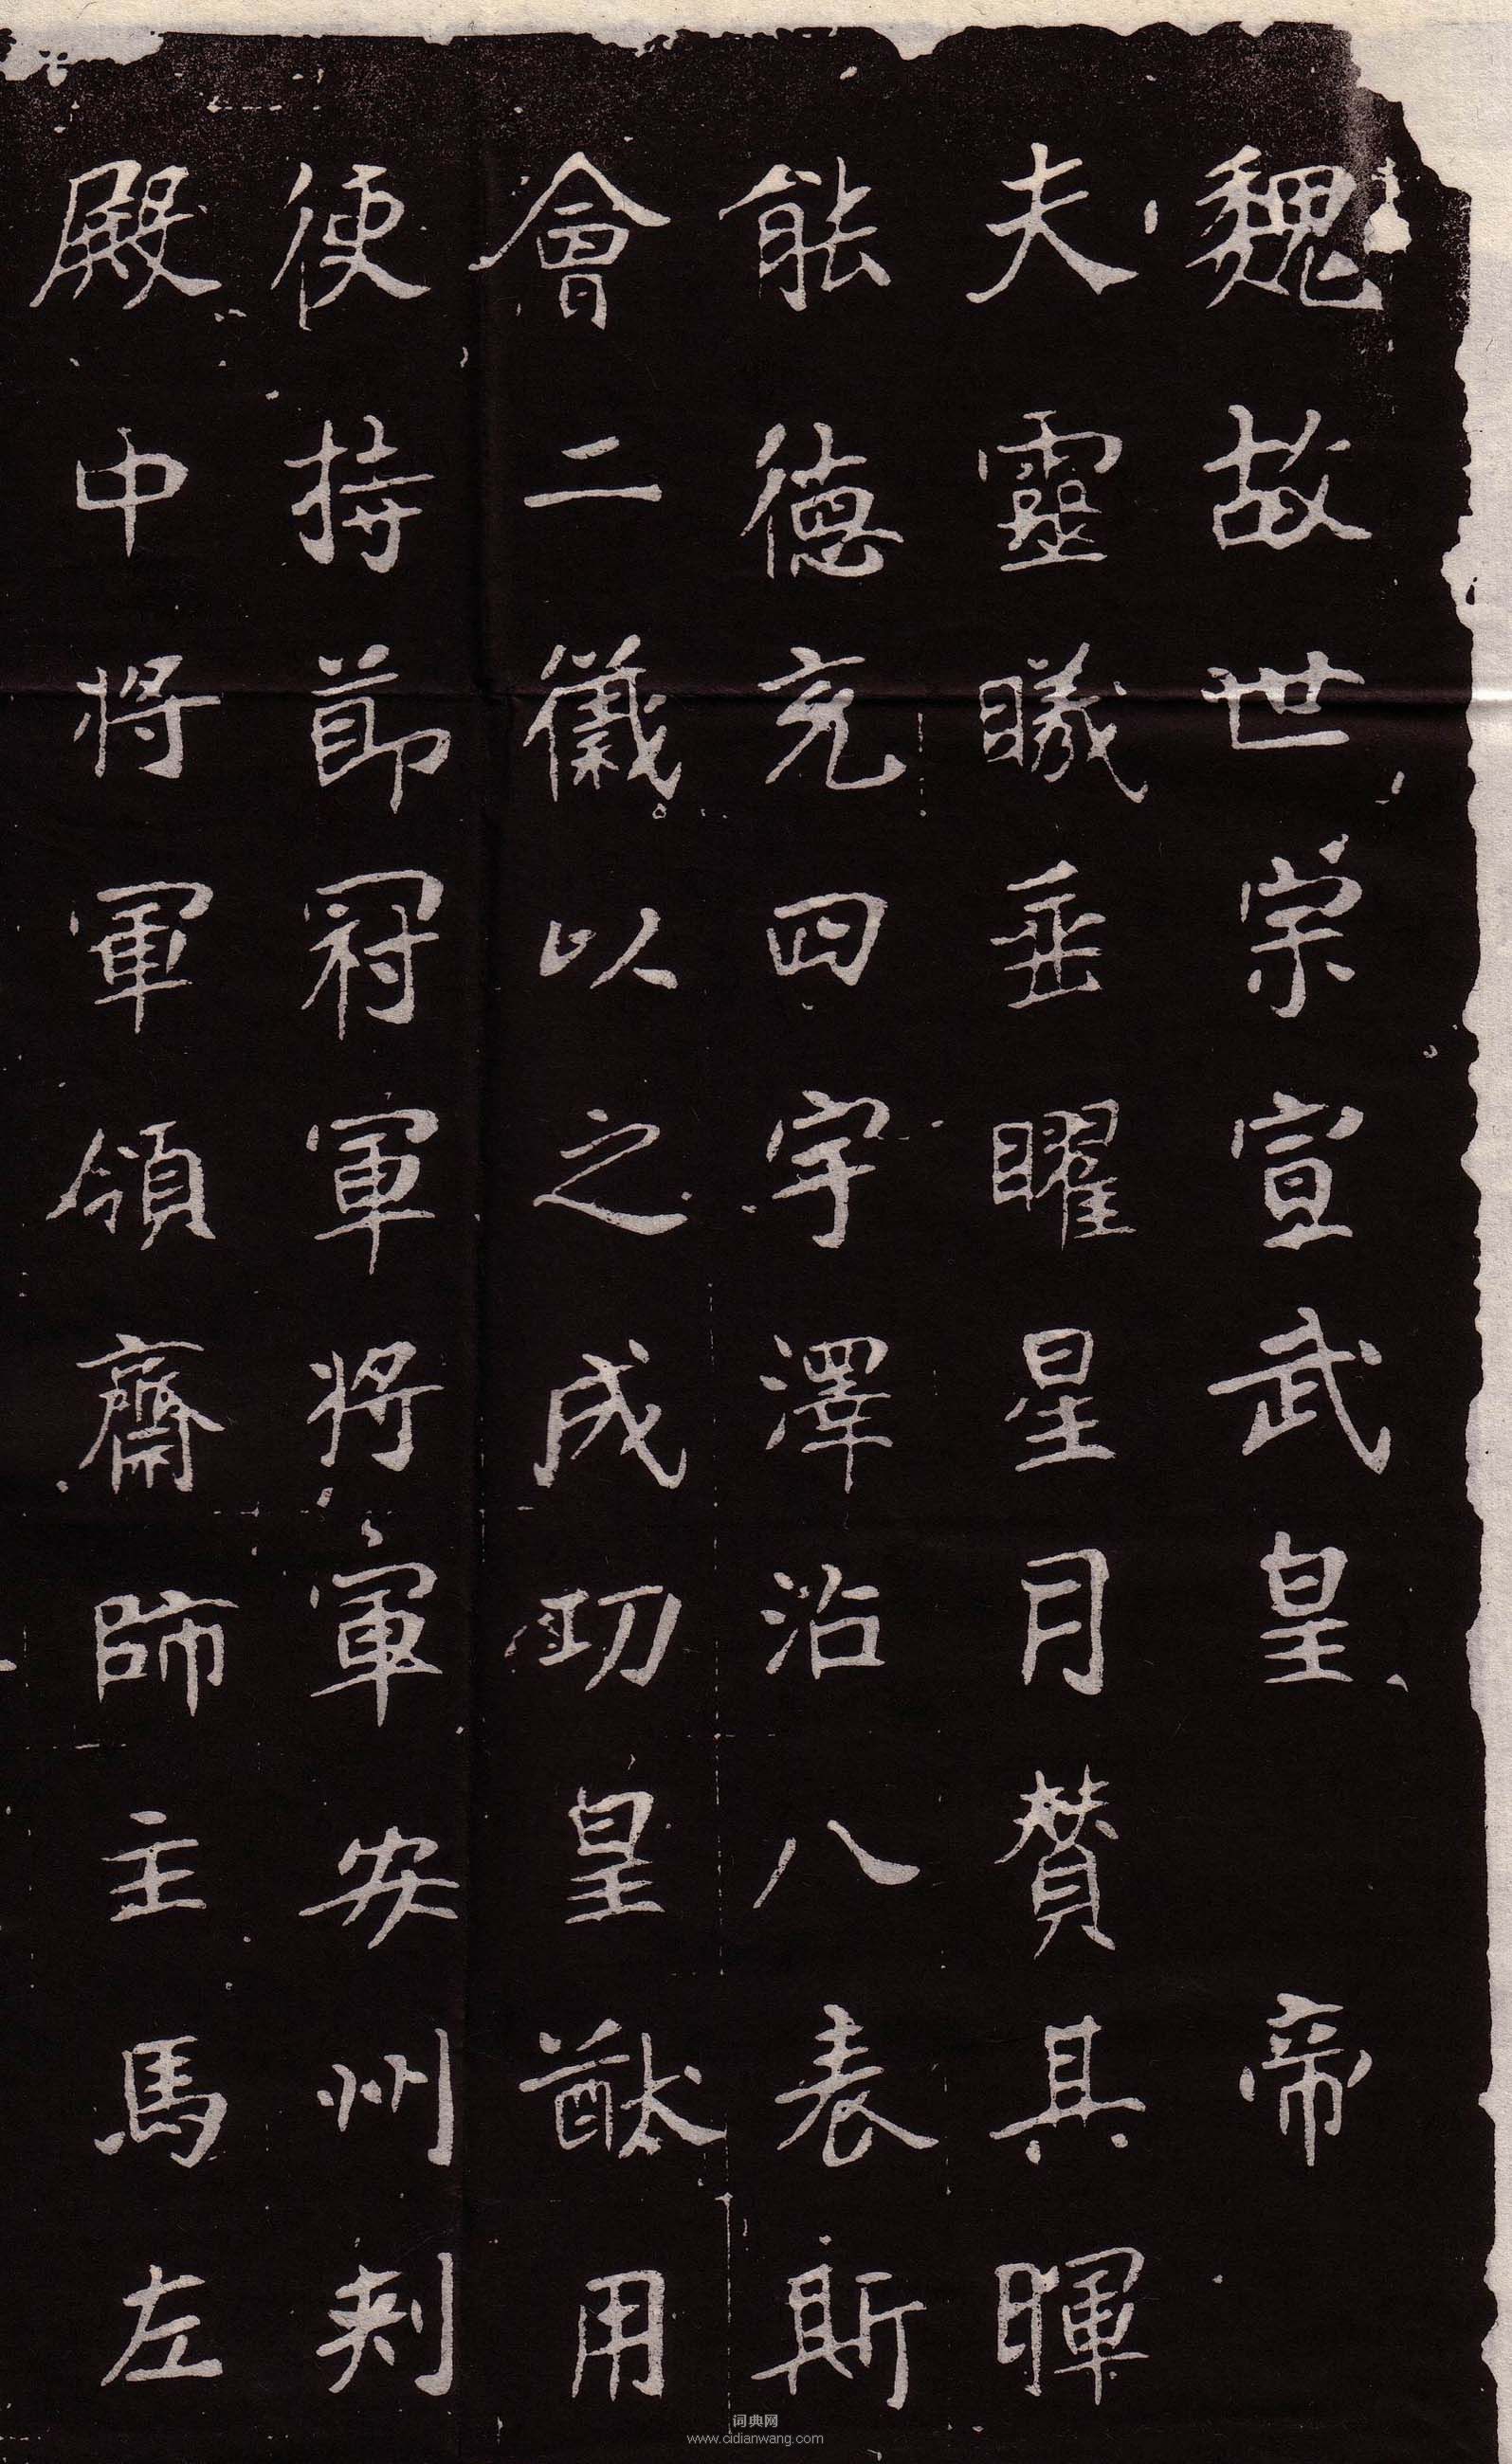 魏故世宗宣武皇帝
夫靈曦垂曜星月贊其暉
能德充四宇澤沾八表斯
會二儀以之成功皇猷用
使持節冠軍將軍安州刺
殿中將軍領齋帥主馬左
词典网
www.cidianwang.com